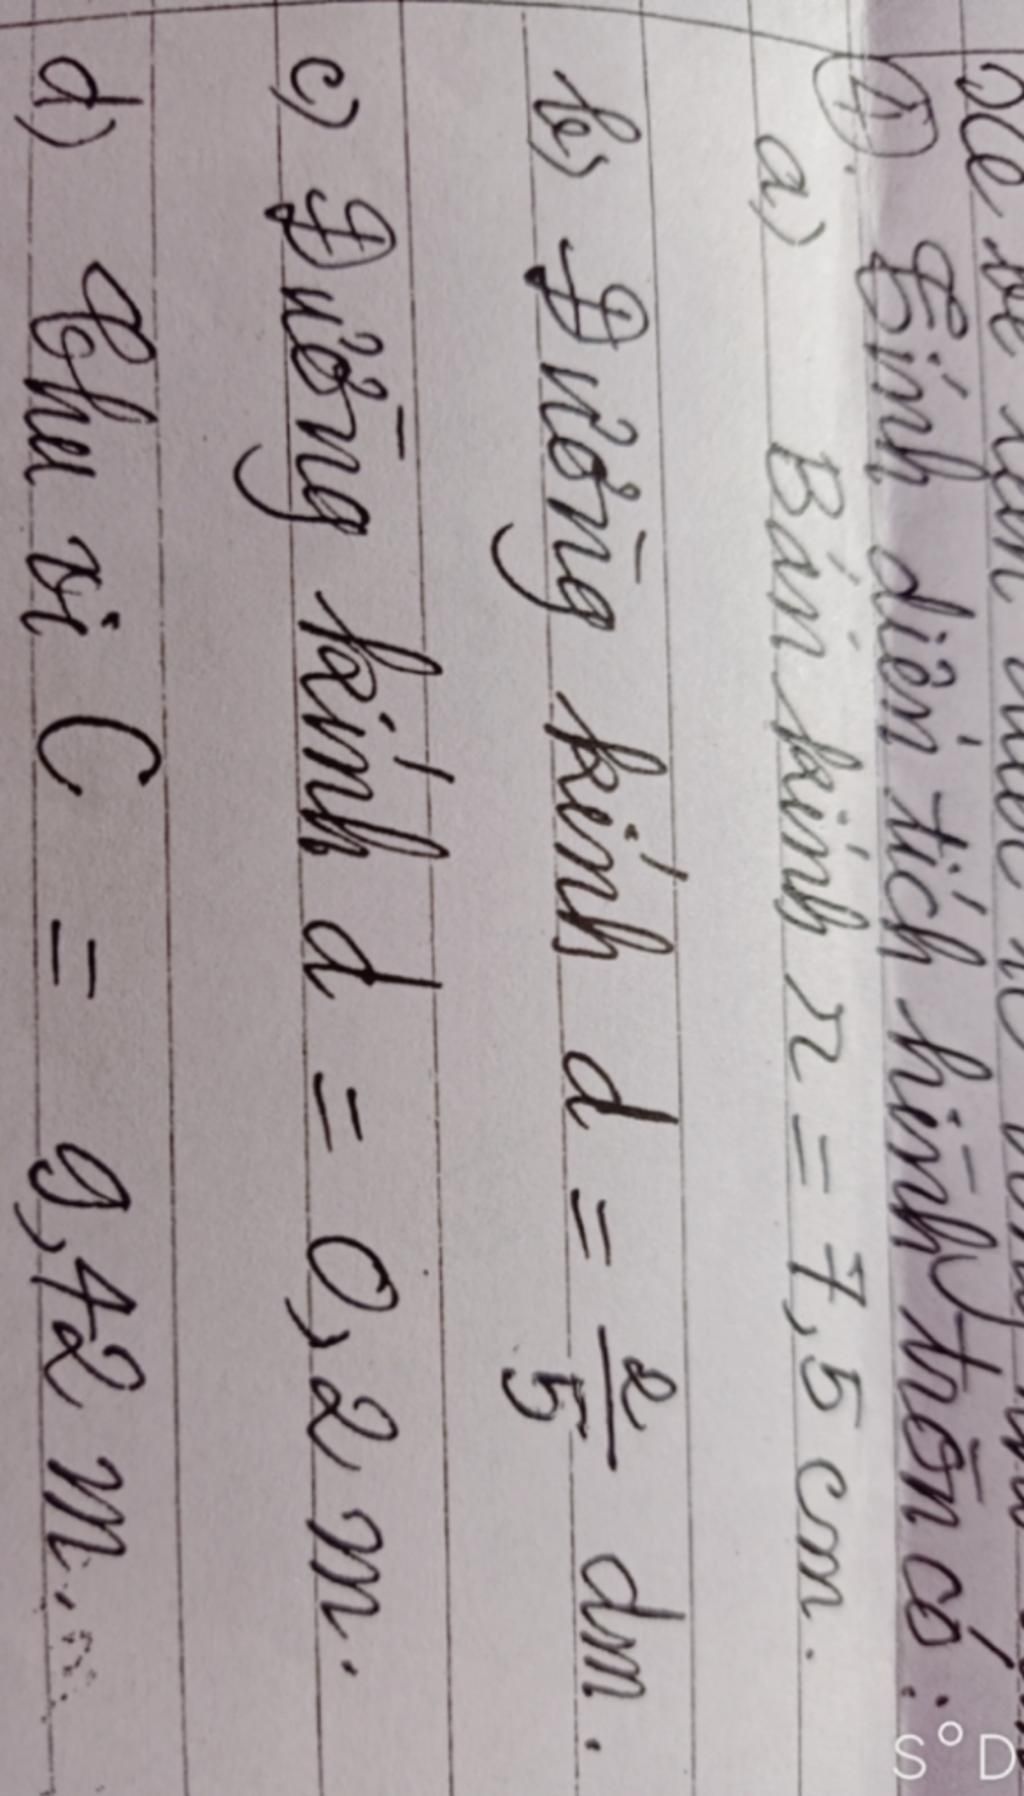 ④ Tính diện tích hình tròn có :
a) Bán kính r = 7,5 cm.
b) Đường kính d = 2/5 dm.
c) Đường kính d = 0,2 m.
d) Chu vi C = 9,42 m.
S°D